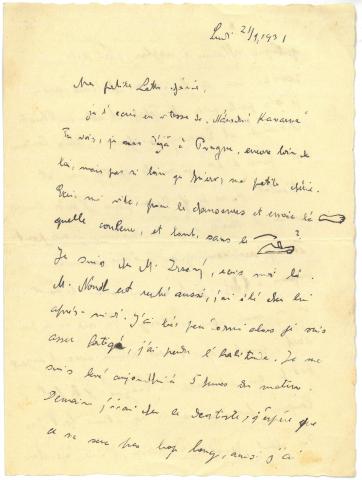 Lundi 21/9, 1931
Ma petite chérie,
je t'écris en vitesse de „Národní Kavárna"
Tu vois, je suis déjà à Prague, encore loin de
toi, mais pas si loin qu'hier, ma petite chérie.
Écris moi vite, pour la et envoie là
quelle couleur, et tout, sans le ?
Je suis chez M. écris moi là.
M. est resté aussi, j'ai été chez lui
après-midi. J'ai très peu dormi alors je suis
assez fatigué, j'ai perdu l'habitude. Je me
suis levé aujourd'hui à 5 heures du matin.
Demain j'irai chez le dentiste, j'espère que
ce ne sera pas trop long, aussi j'ai